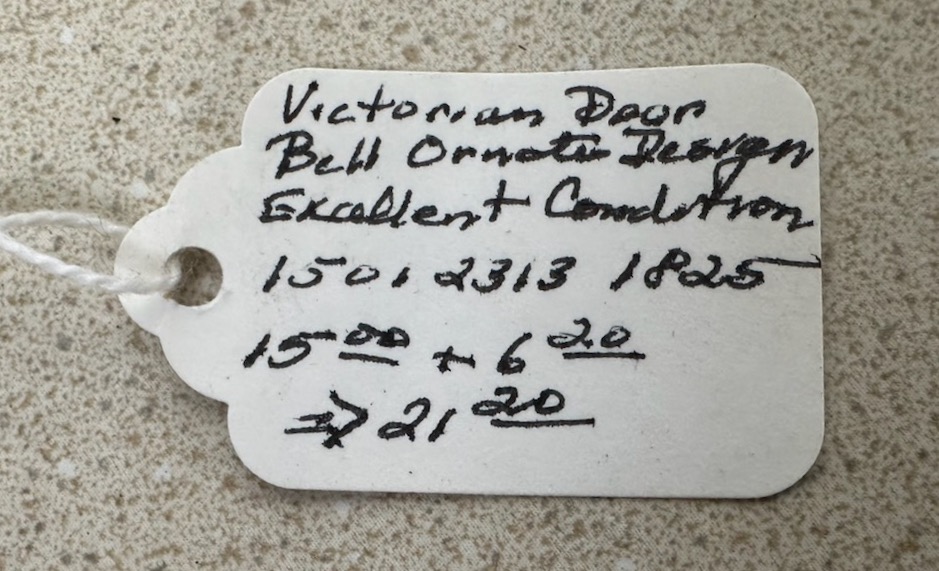 Victorian Door
Bell Ornate Design
Excellent Condition
1501 2313 1825
15 00 + 6 20
⇒ 21 20